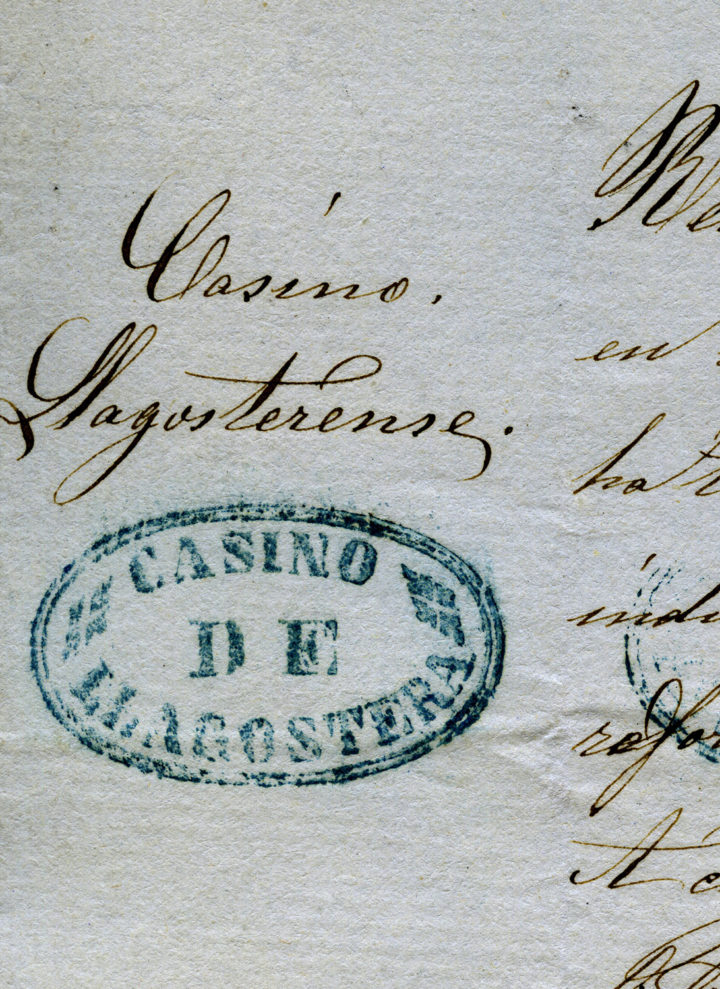 Casino.
Llagosterense.
CASINO
DE
LLAGOSTERA
en
ha
A